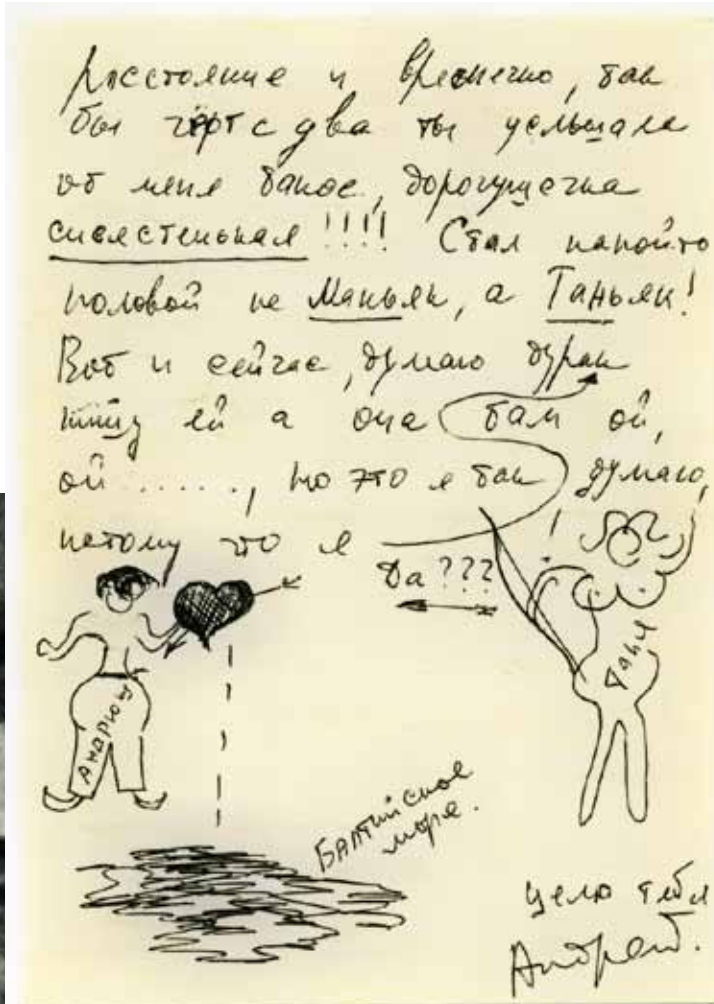 расстояние и времечко, так
бы чёрт с два ты услышала
от меня такое, дорогущечка
сисястенькая!!!! Стал какойто
половой не Маньяк, а Таньяк!
Вот и сейчас, думаю дурак
пишу ей а она там ой,
ой ......, но это я так думаю,
потому что я
Да???
Андрюш
Таня
Балтийское
море.
целю тебя
Андрей.